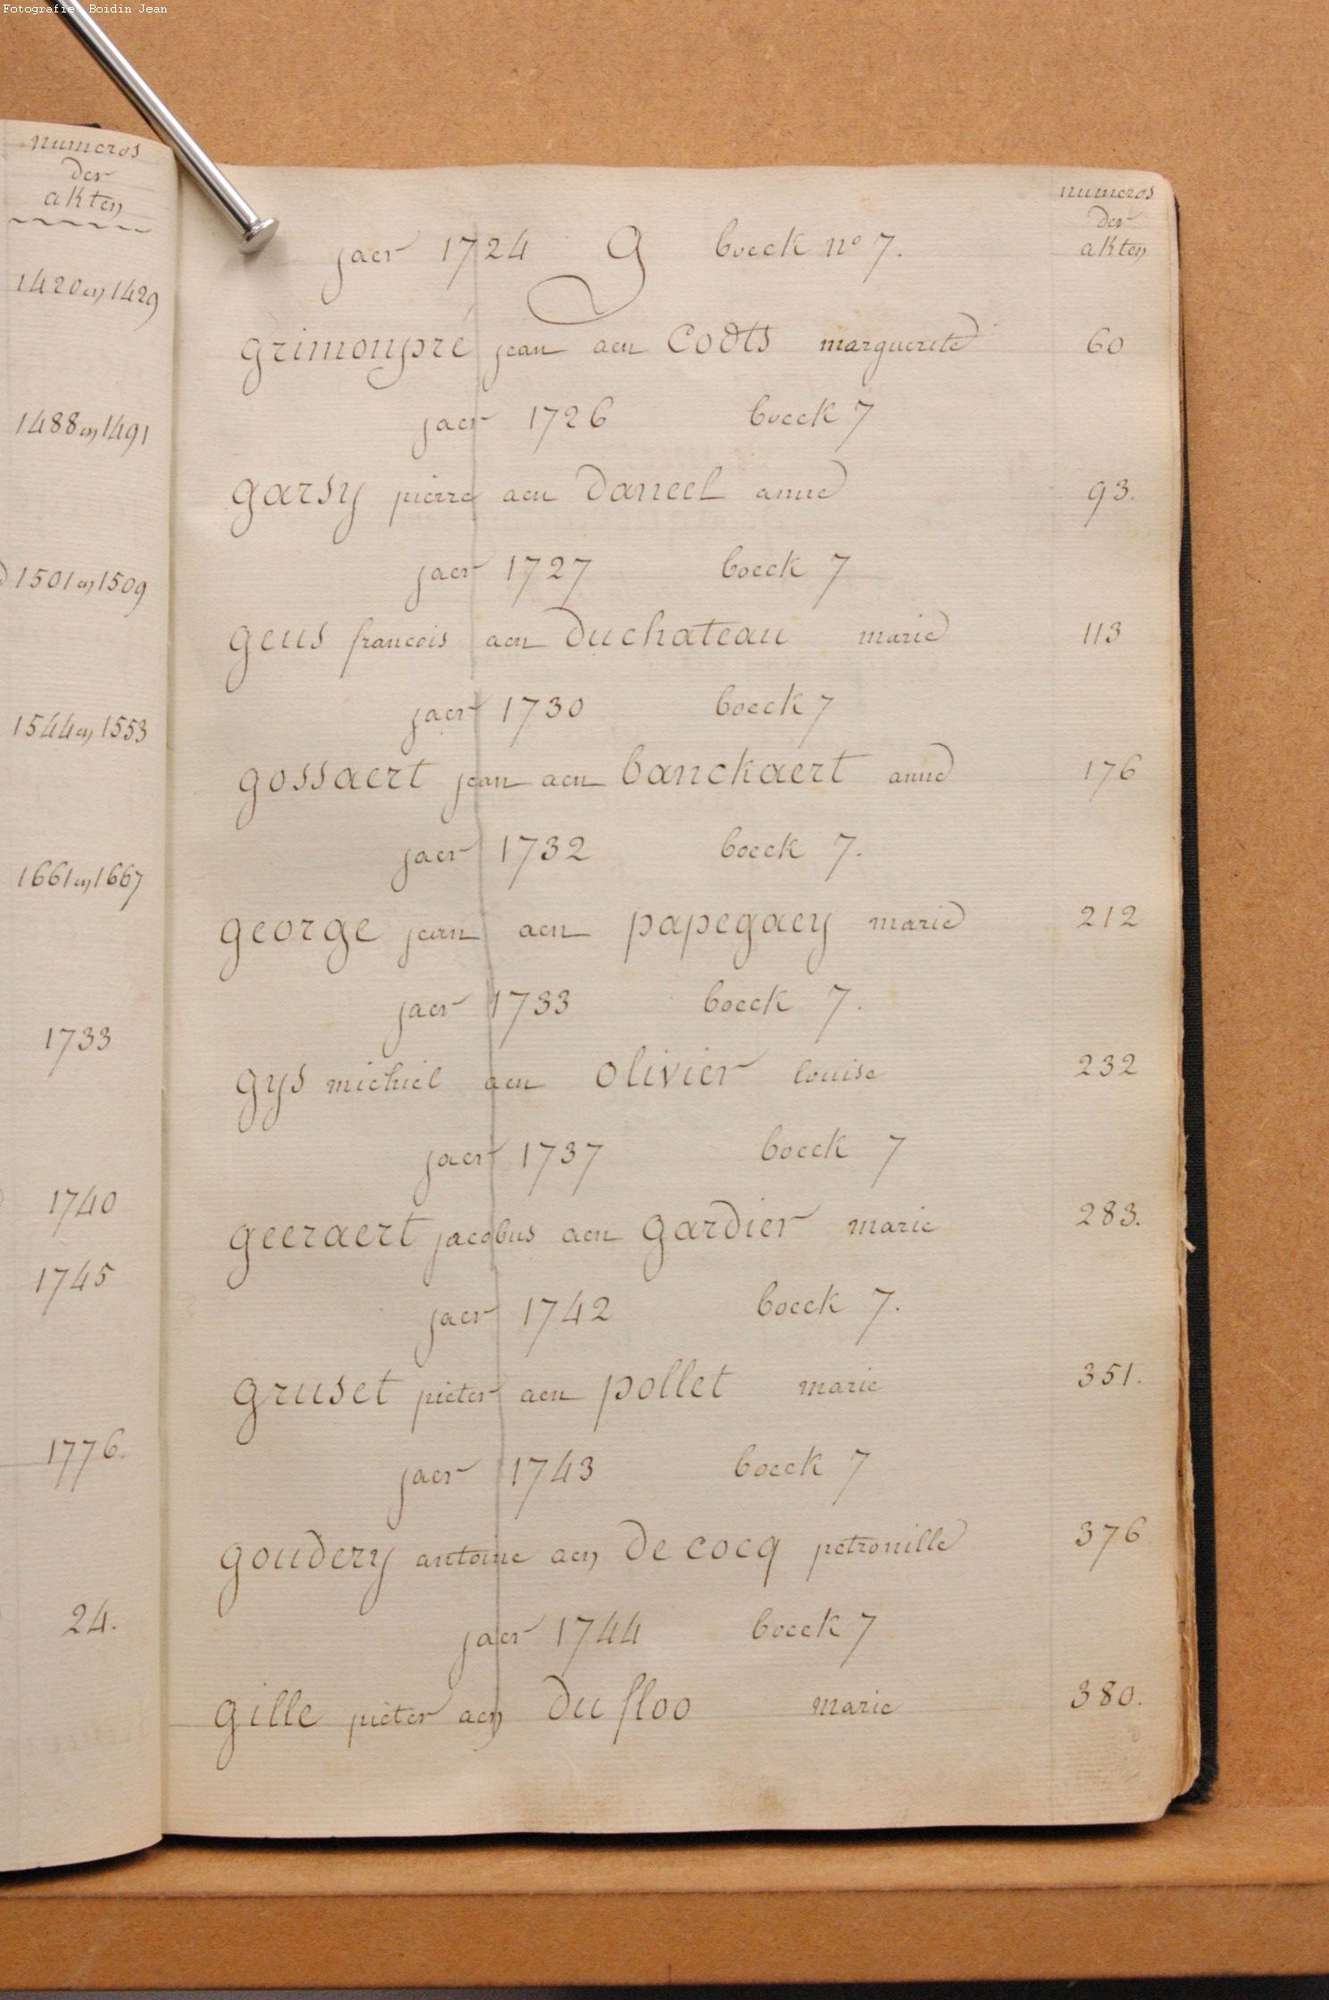 Fotografie: Boidin Jean
numeros
der
akten
1420 en 1429
1488 en 1491
1501 en 1509
1544 en 1553
1661 en 1667
1733
1740
1745
1776.
24.
numeros
der
akten
jaer 1724 G boeck nº 7.
grimonpré jean aen marguerite 60
jaer 1726 boeck 7
garsy pierre aen daneel anne 93.
jaer 1727 boeck 7
geus francois aen duchateau marie 113
jaer 1730 boeck 7
gossaert jean aen banckaert anne 176
jaer 1732 boeck 7.
george jean aen papegaey marie 212
jaer 1733 boeck 7.
gys michiel aen olivier louise 232
jaer 1737 boeck 7
geeraert jacobus aen gardier marie 283.
jaer 1742 boeck 7.
gruset pieter aen pollet marie 351.
jaer 1743 boeck 7
goudery antoine aen de cocq petronille 376
jaer 1744 boeck 7
gille pieter aen du floo marie 380.